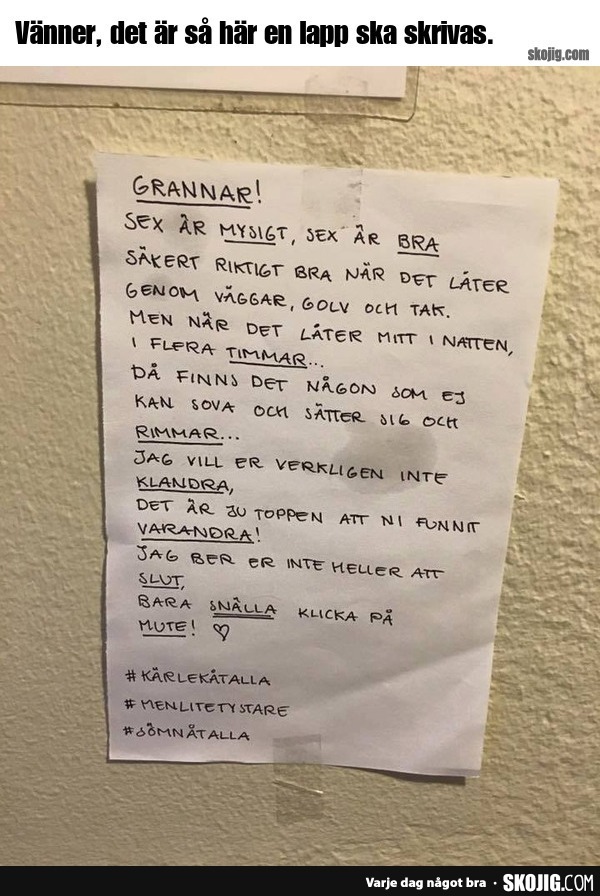 Vänner, det är så här en lapp ska skrivas.
skojig.com
GRANNAR!
SEX ÄR MYSIGT, SEX ÄR BRA
SÄKERT RIKTIGT BRA NÄR DET LÅTER
GENOM VÄGGAR, GOLV OCH TAK.
MEN NÄR DET LÅTER MITT I NATTEN,
I FLERA TIMMAR...
DÅ FINNS DET NÅGON SOM EJ
KAN SOVA OCH SÄTTER SIG OCH
RIMMAR...
JAG VILL ER VERKLIGEN INTE
KLANDRA,
DET ÄR JU TOPPEN ATT NI FUNNIT
VARANDRA!
JAG BER ER INTE HELLER ATT
SLUT,
BARA SNÄLLA KLICKA PÅ
MUTE! ♡
#KÄRLEKÅTALLA
#MENLITETYSTARE
#SÖMNÅTALLA
Varje dag något bra · SKOJIG.COM